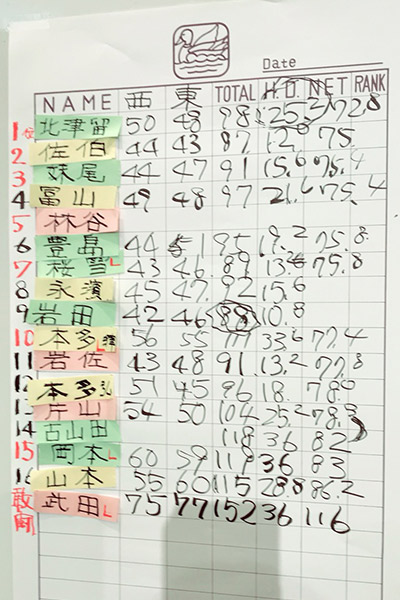 Date
NAME 西 東 TOTAL H.D. NET RANK
1位 北津留 50 48 98 25.2 72.8
2 佐伯 44 43 87 12.0 75.
3 妹尾 44 47 91 15.6 75.4
4 冨山 49 48 97 21.6 75.4
5 林谷
6 豊島 44 51 95 19.2 75.8
7 桜雪L 43 46 89 13.2 75.8
8 永濱 45 47 92 15.6
9 岩田 42 46 88 10.8
10 本多L 56 55 111 33.6 77.4
11 岩佐 43 48 91 13.2 77.8
12 本多弘 51 45 96 18. 78.0
13 片山 54 50 104 25.2 78.8
14 古山田 118 36 82
15 岡本L 60 59 119 36 83
16 山本 55 60 115 28.8 86.2
敢闘 武田L 75 77 152 36 116